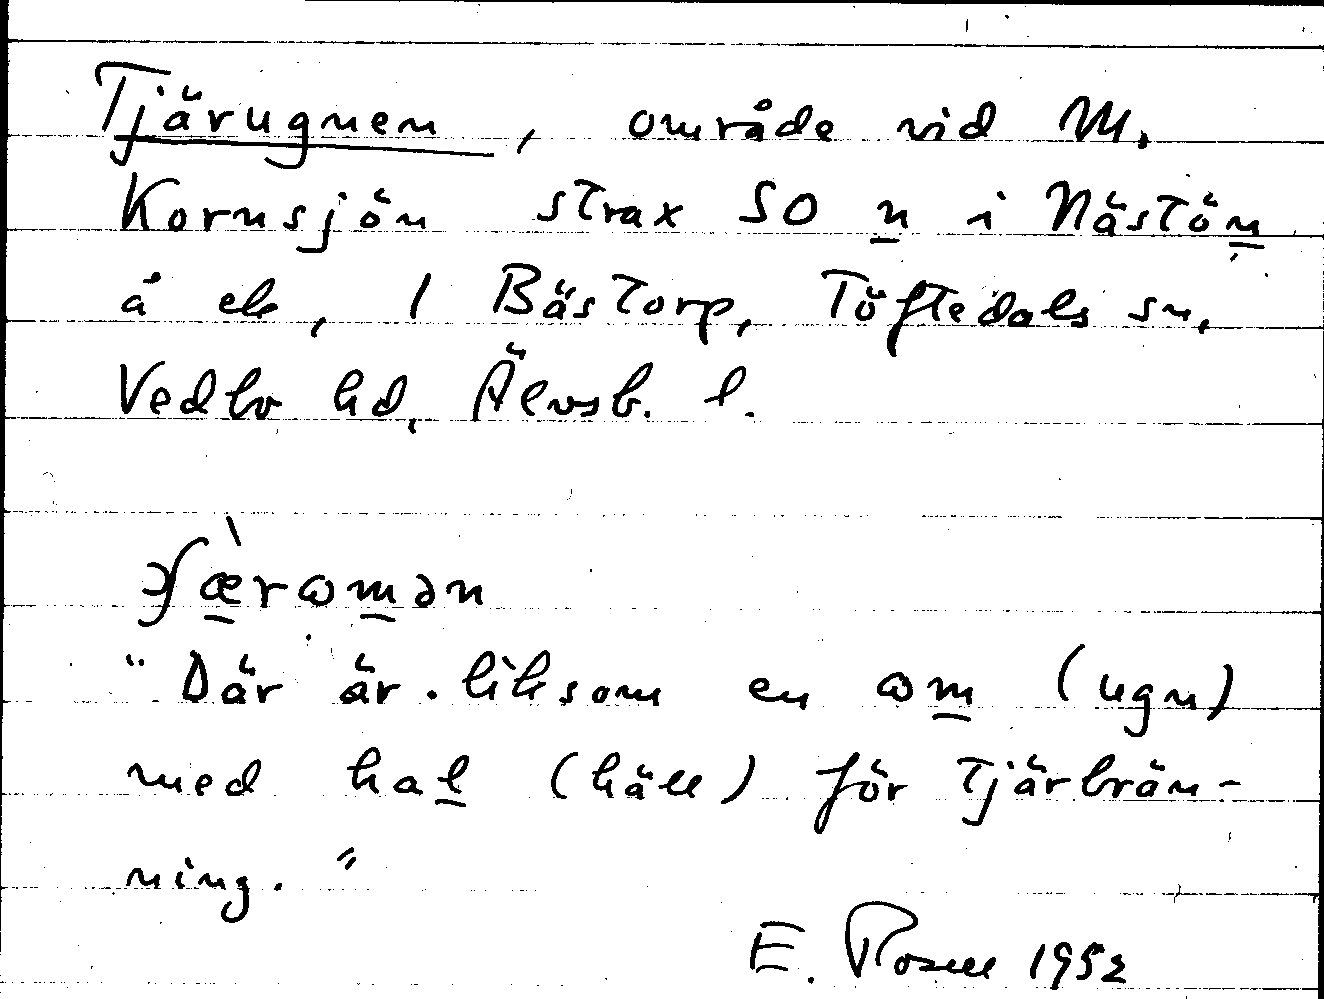 Tjärugnen, område vid M.
Kornsjön strax SO n i Nästön
å ek, 1 Bästorp, Töftedals sn,
Vedbo hd, Älvsb. l.
"Där är liksom en ωm (ugn)
med hal (häll) för tjärbrän-
ning."
E. Rosell 1952